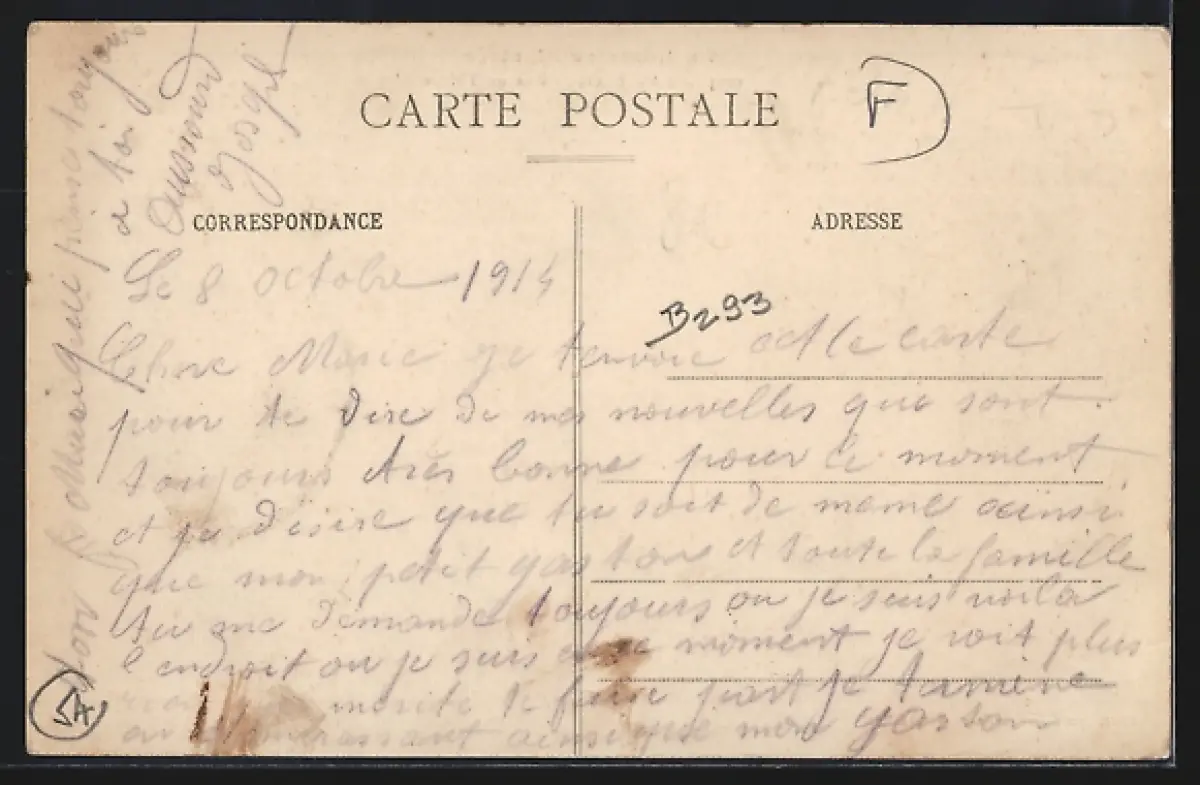 CARTE POSTALE
F
CORRESPONDANCE
ADRESSE
B293
Le 8 octobre 1914
Chere Marie je tenvoie cette carte
pour te dire de mes nouvelles que sont
toujours tres bonne pour le moment
et je desire que tu soit de meme ainsi
que mon petit gaston et toute la famille
tu me demande toujours ou je suis voila
l endroit ou je suis moment je voit plus
te faire part je termine
en ainsi que mon gaston
ton qui pense toujours
a toi
Joseph
5A